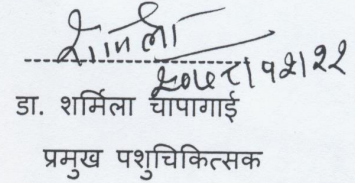 २०७८।१२।२२
डा. शर्मिला चापागाई
प्रमुख पशुचिकित्सक